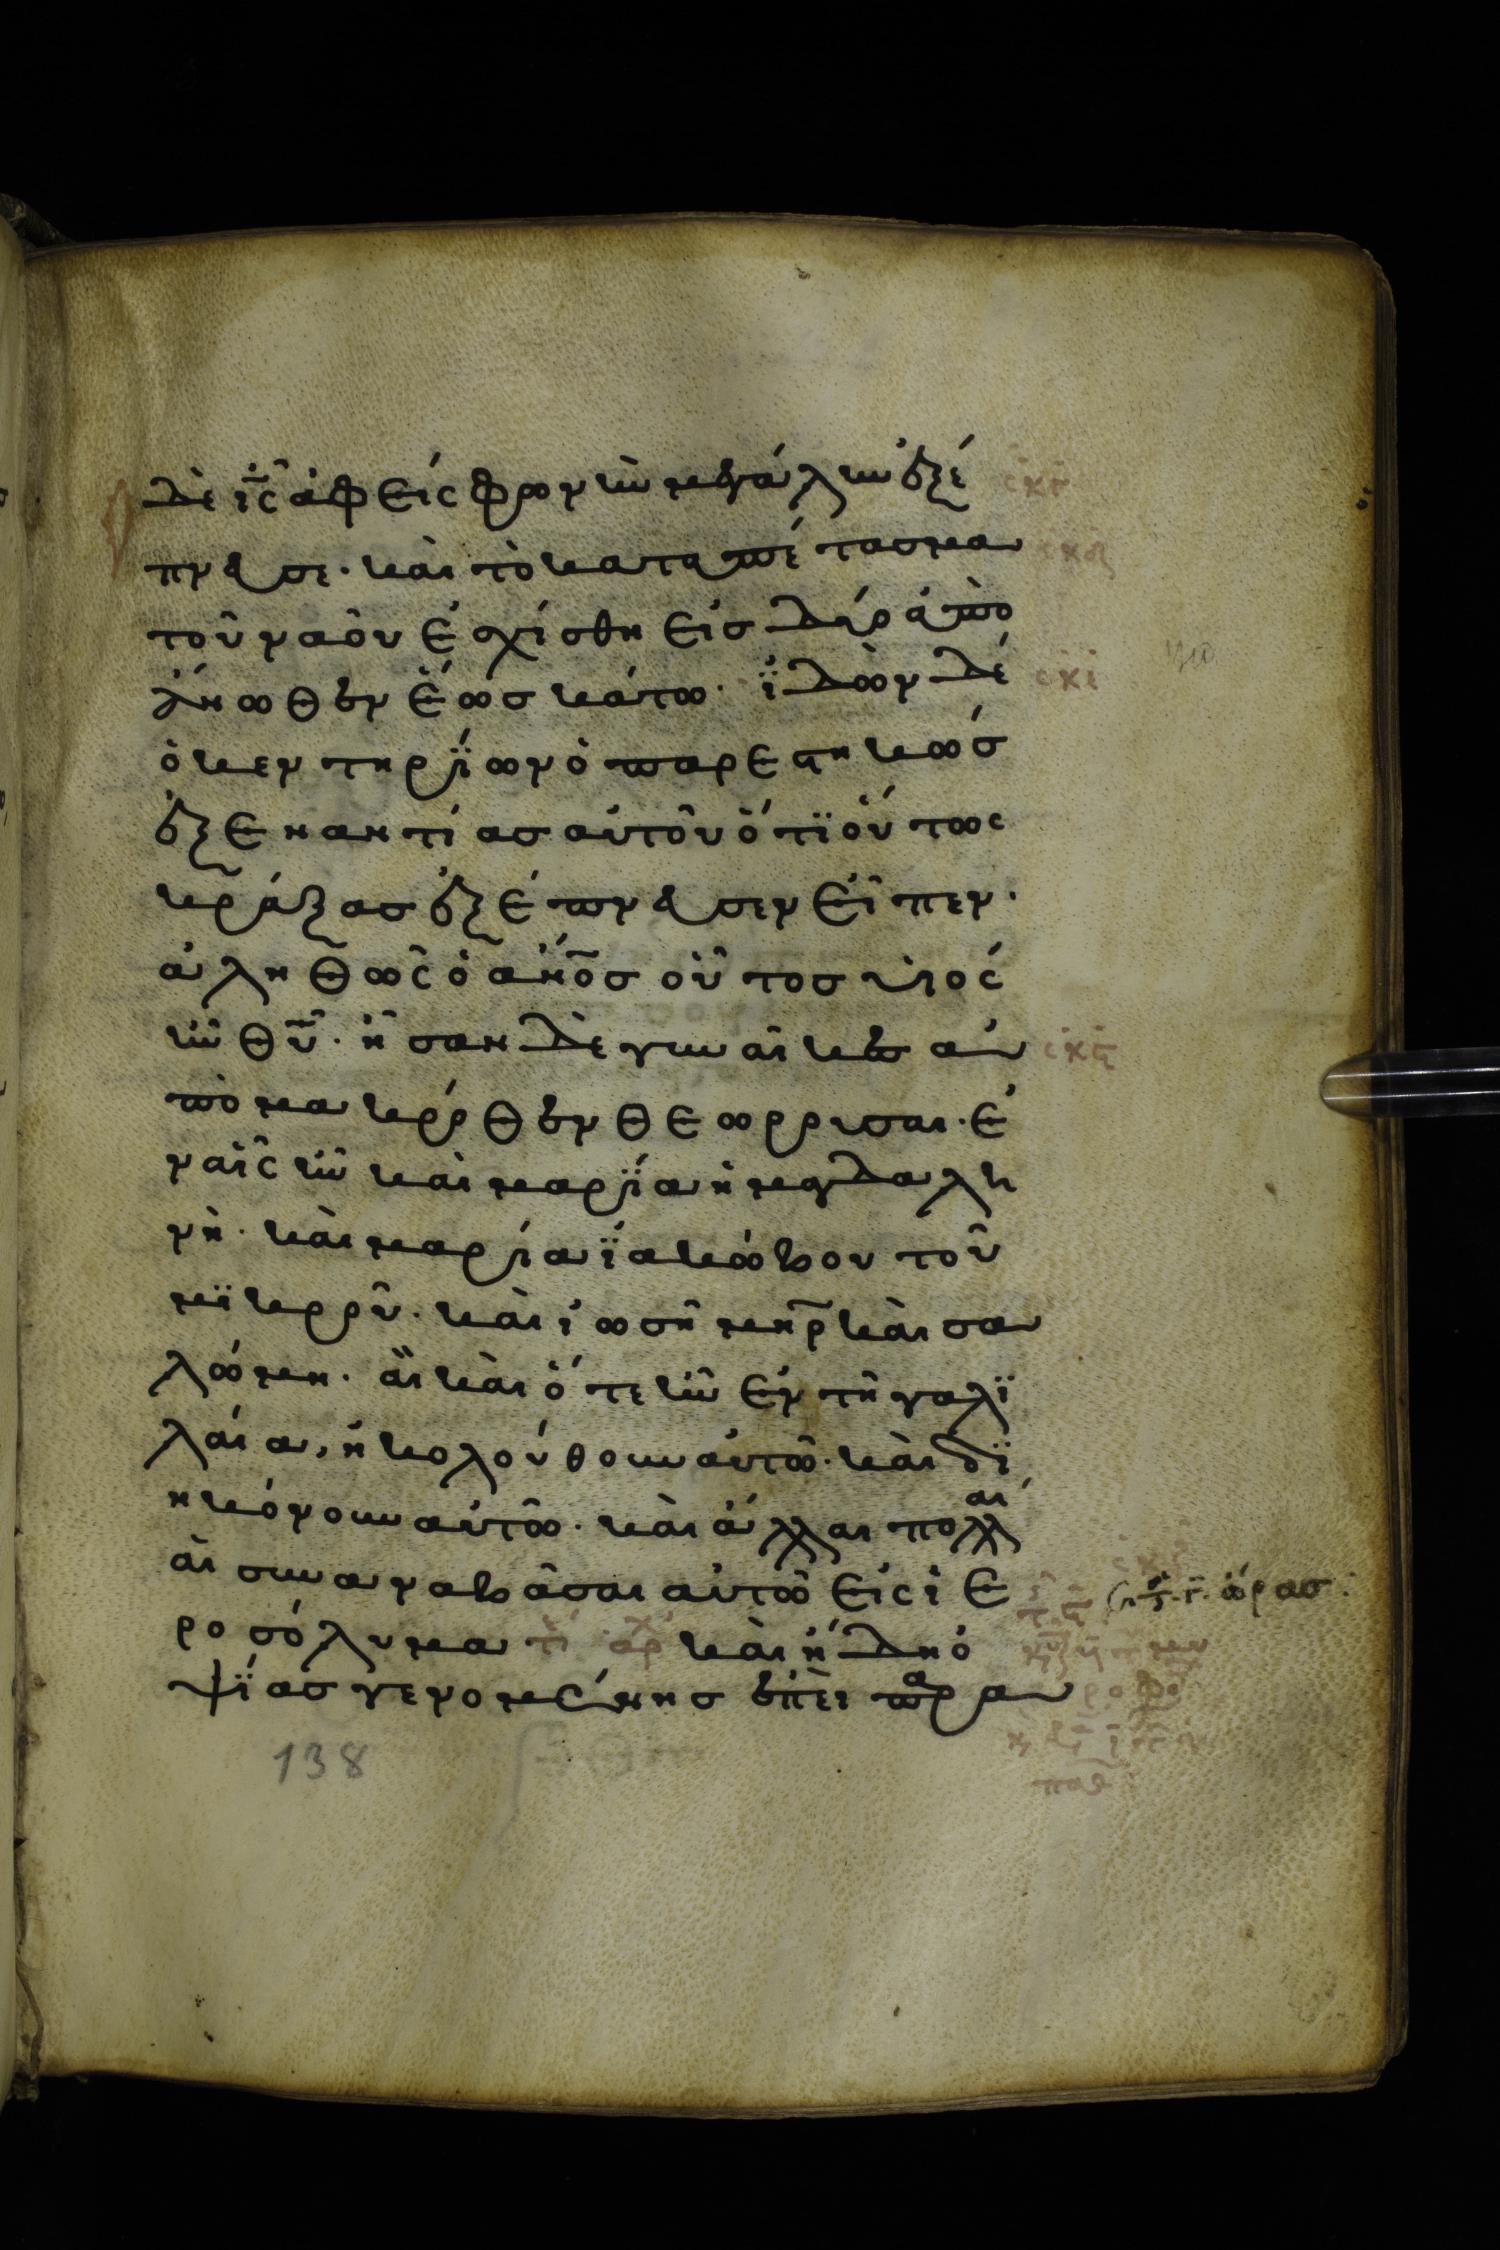 δὲ ἰ̅ς̅ ἀφεὶς φωνὴν μεγάλην ἐξέ
πνευσε· καὶ τὸ καταπέτασμα
τοῦ ναοῦ ἐσχίσθη εἰσ δύο ἀπὸ
ἄνωθεν ἕωσ κάτω· ἰδὼν δὲ
ὁ κεντηρίων ὁ παρεστηκώσ
ἐξ ἐναντίασ αὐτοῦ ὅτι οὕτως
κράξασ ἐξέπνευσεν εἶπεν·
ἀληθῶς ὁ ἄν̅ο̅σ οὗτοσ υἱὸς
ἦν θ̅υ̅· ἦσαν δὲ γυναῖκεσ ἀ
πὸ μακρόθεν θεωροῦσαι· ἐ
ν αἷς ἦν καὶ μαρία ἡ μαγδαλη
νὴ· καὶ μαρία ἰακώβου τοῦ
μικροῦ· καὶ ἰωσῆ μη̅ρ̅ καὶ σα
λώμη· αἳ καὶ ὅτε ἦν ἐν τῆ γαλι
λαία, ἠκολούθουν αὐτῶ· καὶ δι
ηκόνουν αὐτῶ· καὶ ἄλλαι πολλ
αὶ συναναβᾶσαι αὐτῶ εἰς ἱε
ροσόλυμα τέ αρχ καὶ ἤδη ὀ
ψίασ γενομένησ ἐπεὶ παρα
138